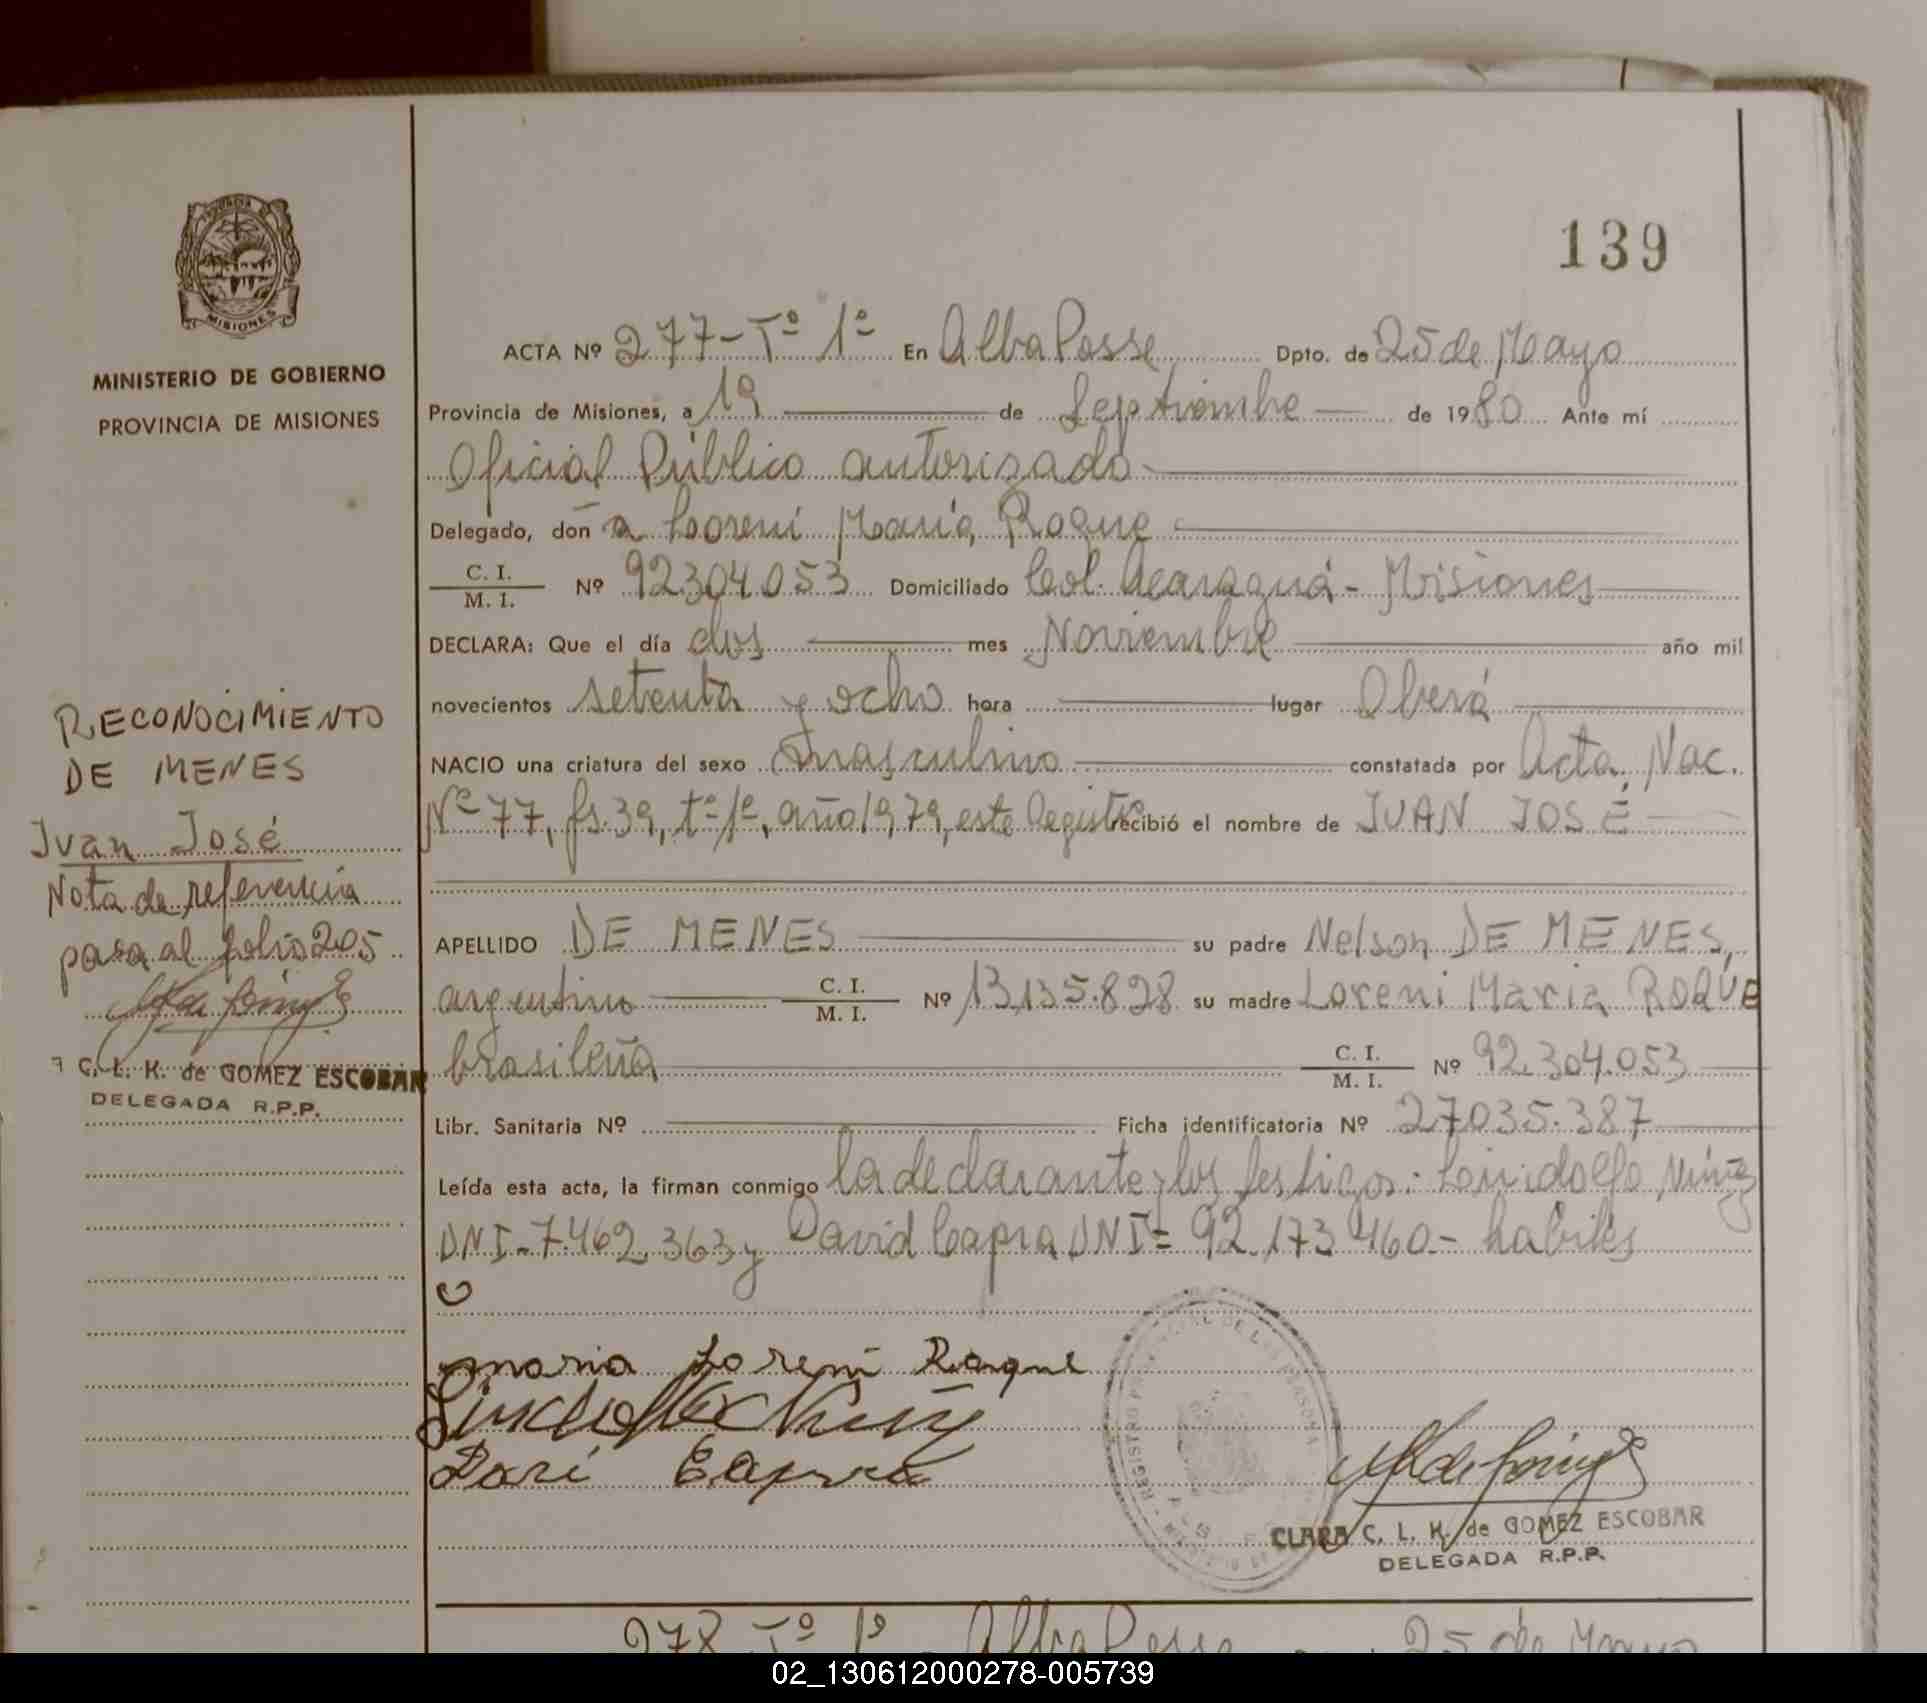 139
PROVINCIA DE
MISIONES
MINISTERIO DE GOBIERNO
PROVINCIA DE MISIONES
ACTA Nº 277-Tº 1º En Alba Posse Dpto. de 25 de Mayo
Provincia de Misiones, a 19 de Septiembre de 1980 Ante mí
Oficial Público autorizado
Delegado, don a Loreni María Roque
C. I.
M. I. Nº 92304.053 Domiciliado Col. Acaraguá - Misiones
DECLARA: Que el día dos mes Noviembre año mil
novecientos setenta y ocho hora lugar Oberá
NACIO una criatura del sexo masculino constatada por Acta Nac.
Nº 77, fs. 39, tº 1º, año 1979, este Registro recibió el nombre de JUAN JOSÉ
APELLIDO DE MENES su padre Nelson DE MENES,
argentino C. I.
M. I. Nº 13.135.828 su madre Loreni Maria ROQUE
brasileña C. I.
M. I. Nº 92.304.053
Libr. Sanitaria Nº Ficha identificatoria Nº 27035.387
Leída esta acta, la firman conmigo la declarante y los testigos: Lindolfo Núñez
DNI-7.462.363 y David Capra DNI= 92.173.460.- hábiles
RECONOCIMIENTO
DE MENES
Juan José
Nota de referencia
pasa al folio 205
C. L. K. de GOMEZ ESCOBAR
DELEGADA R.P.P.
maria Loreni Roque
Capra
REGISTRO PROVINCIAL DE LAS PERSONAS
CLARA C. L. K. de GOMEZ ESCOBAR
DELEGADA R.P.P.
278 Tº 1º Alba Posse 25 de Mayo
02_130612000278-005739